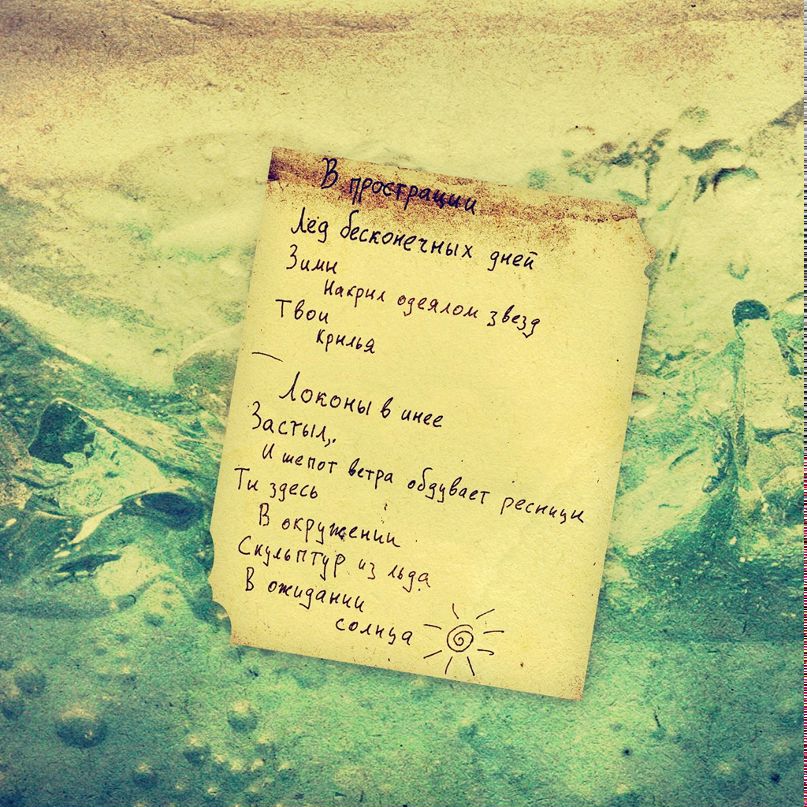 В прострации
Лёд бесконечных дней
Зимы
Накрыл одеялом звезд
Твои
Крылья
Локоны в инее
Застыл,.
И шепот ветра обдувает ресницы
Ты здесь
В окружении
Скульптур из льда
В ожидании
солнца